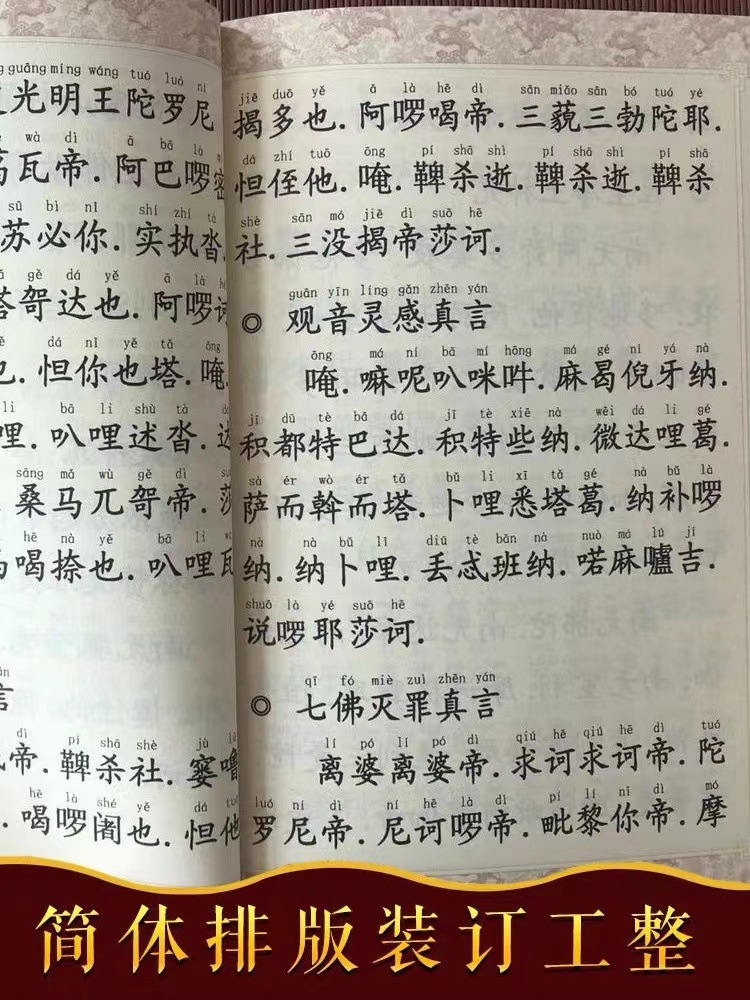 guāng míng wáng tuó luó ní
光明王陀罗尼
wà dì ā bā là
瓦帝.阿巴啰密
sū bì nǐ shí zhí tà
苏必你.实执沓
gě dá yě ā là
塔哿达也.阿啰
dá nǐ yě tǎ ōng
怛你也塔.唵
li bā li shù tà
哩.叭哩述沓.
sāng mǎ wù gě dì
桑马兀哿帝.莎
hē nà yě bā li
喝捺也.叭哩瓦
言
dì pí shā shè jù
帝.鞞杀社.窭噜
hē là shé yě dá tuō
.喝啰阇也.怛他
jiē duō yě ā là hē dì sān miǎo sān bó tuó yé
揭多也.阿啰喝帝.三藐三勃陀耶.
dá zhí tuō ōng pí shā shì pí shā shì pí shā
怛侄他.唵.鞞杀逝.鞞杀逝.鞞杀
shè sān mó jiē dì suō hē
社.三没揭帝莎诃.
guān yīn líng gǎn zhēn yán
◎ 观音灵感真言
ōng má ní bā mí hōng má gé ní yá nà
唵.嘛呢叭咪吽.麻曷倪牙纳.
jī dū tè bā dá jī tè xiē nà wēi dá li gé
积都特巴达.积特些纳.微达哩葛.
sà ér wò ér tǎ bǔ li xī tǎ gé nà bǔ là
萨而斡而塔.卜哩悉塔葛.纳补啰
nà nà bǔ lī diū tè bān nà nuò má lú jí
纳.纳卜哩.丢忒班纳.喏麻嚧吉.
shuō là yé suō hē
说啰耶莎诃.
qī fó miè zuì zhēn yán
◎ 七佛灭罪真言
lí pó lí pó dì qiú hē qiú hē dì tuó
离婆离婆帝.求诃求诃帝.陀
luó ní dì ní hē là dì pí lí nǐ dì mó
罗尼帝.尼诃啰帝.毗黎你帝.摩
简体排版装订工整